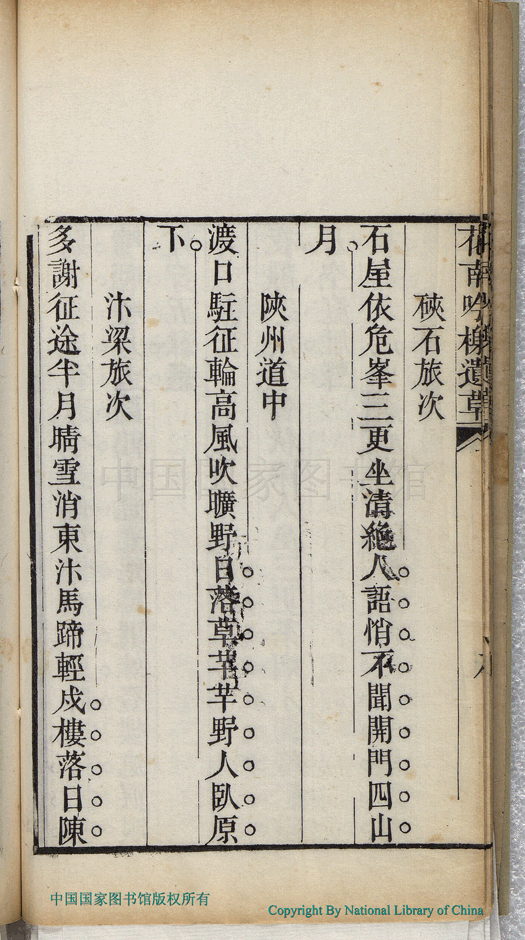 花南吟榭遺草
硤石旅次
石屋依危峯三更坐清絶人語悄不聞開門四山
月
陝州道中
渡口駐征輪高風吹曠野日落草芊芊野人臥原
下
汴梁旅次
多謝征途半月晴雪消東汴馬蹄輕戍樓落日陳
中国国家图书馆
中国国家图书馆版权所有
Copyright By National Library of China